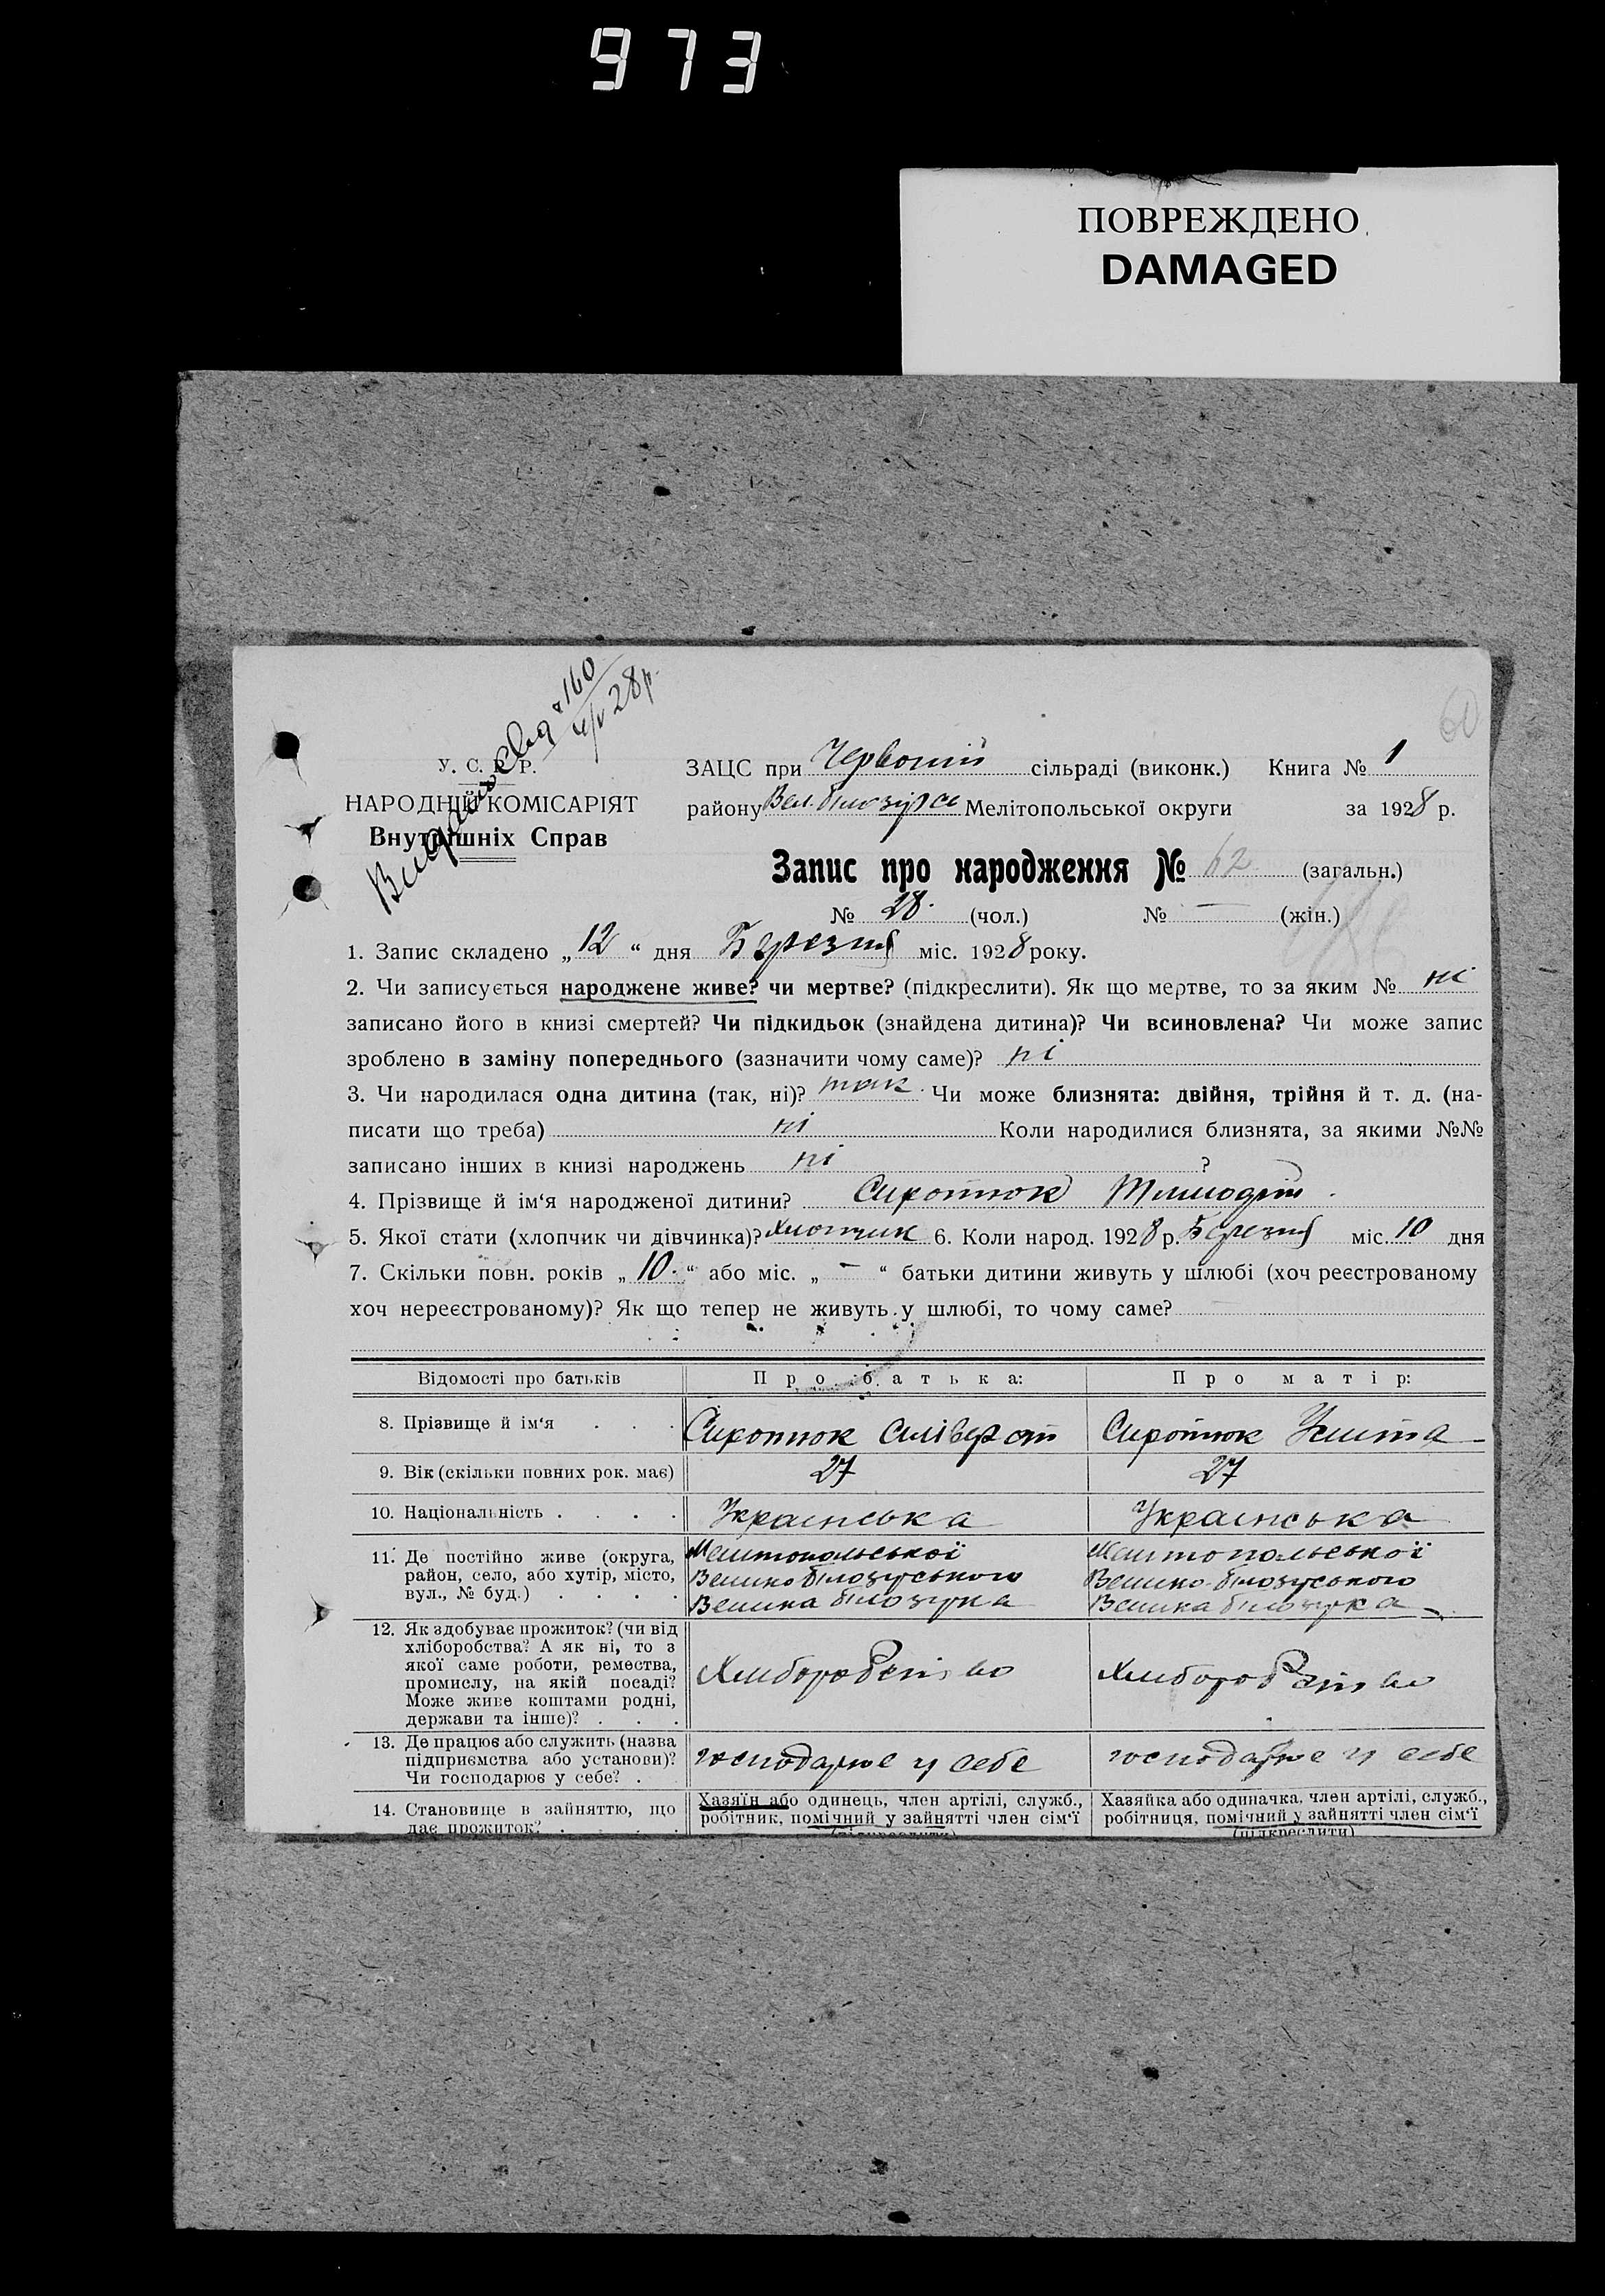 973
ПОВРЕЖДЕНО
DAMAGED
60
160
4/V 28 р.
У. С. Р. Р.
НАРОДНІЙ КОМІСАРІЯТ
Внутрішніх Справ
ЗАЦС при Червоній сільраді (виконк.) Книга № 1
району Вел. Білозірсь Мелітопольської округи за 1928 р.
Запис про народження № 62 (загальн.)
№ 28. (чол.) № — (жін.)
1. Запис складено „12“ дня Березня міс. 1928 року.
2. Чи записується народжене живе? чи мертве? (підкреслити). Як що мертве, то за яким № ні
записано його в книзі смертей? Чи підкидьок (знайдена дитина)? Чи всиновлена? Чи може запис
зроблено в заміну попереднього (зазначити чому саме)? ні
3. Чи народилася одна дитина (так, ні)? так. Чи може близнята: двійня, трійня й т. д. (на-
писати що треба) ні Коли народилися близнята, за якими №№
записано інших в книзі народжень ні ?
4. Прізвище й ім‘я народженої дитини? Сиротюк
5. Якої стати (хлопчик чи дівчинка)? Хлопчик 6. Коли народ. 1928 р. Березня міс. 10 дня
7. Скільки повн. років „10.“ або міс. „—“ батьки дитини живуть у шлюбі (хоч реєстрованому
хоч нереєстрованому)? Як що тепер не живуть у шлюбі, то чому саме?
Відомості про батьків Про батька: Про матір:
8. Прізвище й ім‘я . . . Сиротюк Силіверст Сиротюк Улита
9. Вік (скільки повних рок. має) 27 27
10. Національність . . . . Українська Українська
11. Де постійно живе (округа, Мелітопольської Мелітопольської
район, село, або хутір, місто, Велико Білозуського Велико-Білозуського
вул., № буд.) . . . . Велика Білозірка Велика Білозірка
12. Як здобуває прожиток? (чи від
хліборобства? А як ні, то з
якої саме роботи, ремества, Хліборобство Хліборобство
промислу, на якій посаді?
Може живе коштами родні,
держави та інше)? . . .
13. Де працює або служить (назва
підприємства або установи)? господарює у себе господарює у себе
Чи господарює у себе? .
14. Становище в зайняттю, що Хазяїн або одинець, член артілі, служб., Хазяйка або одиначка, член артілі, служб.,
дає прожиток? . . . робітник, помічний у зайнятті член сім‘ї робітниця, помічний у зайнятті член сім‘ї
(підкреслити) (підкреслити)